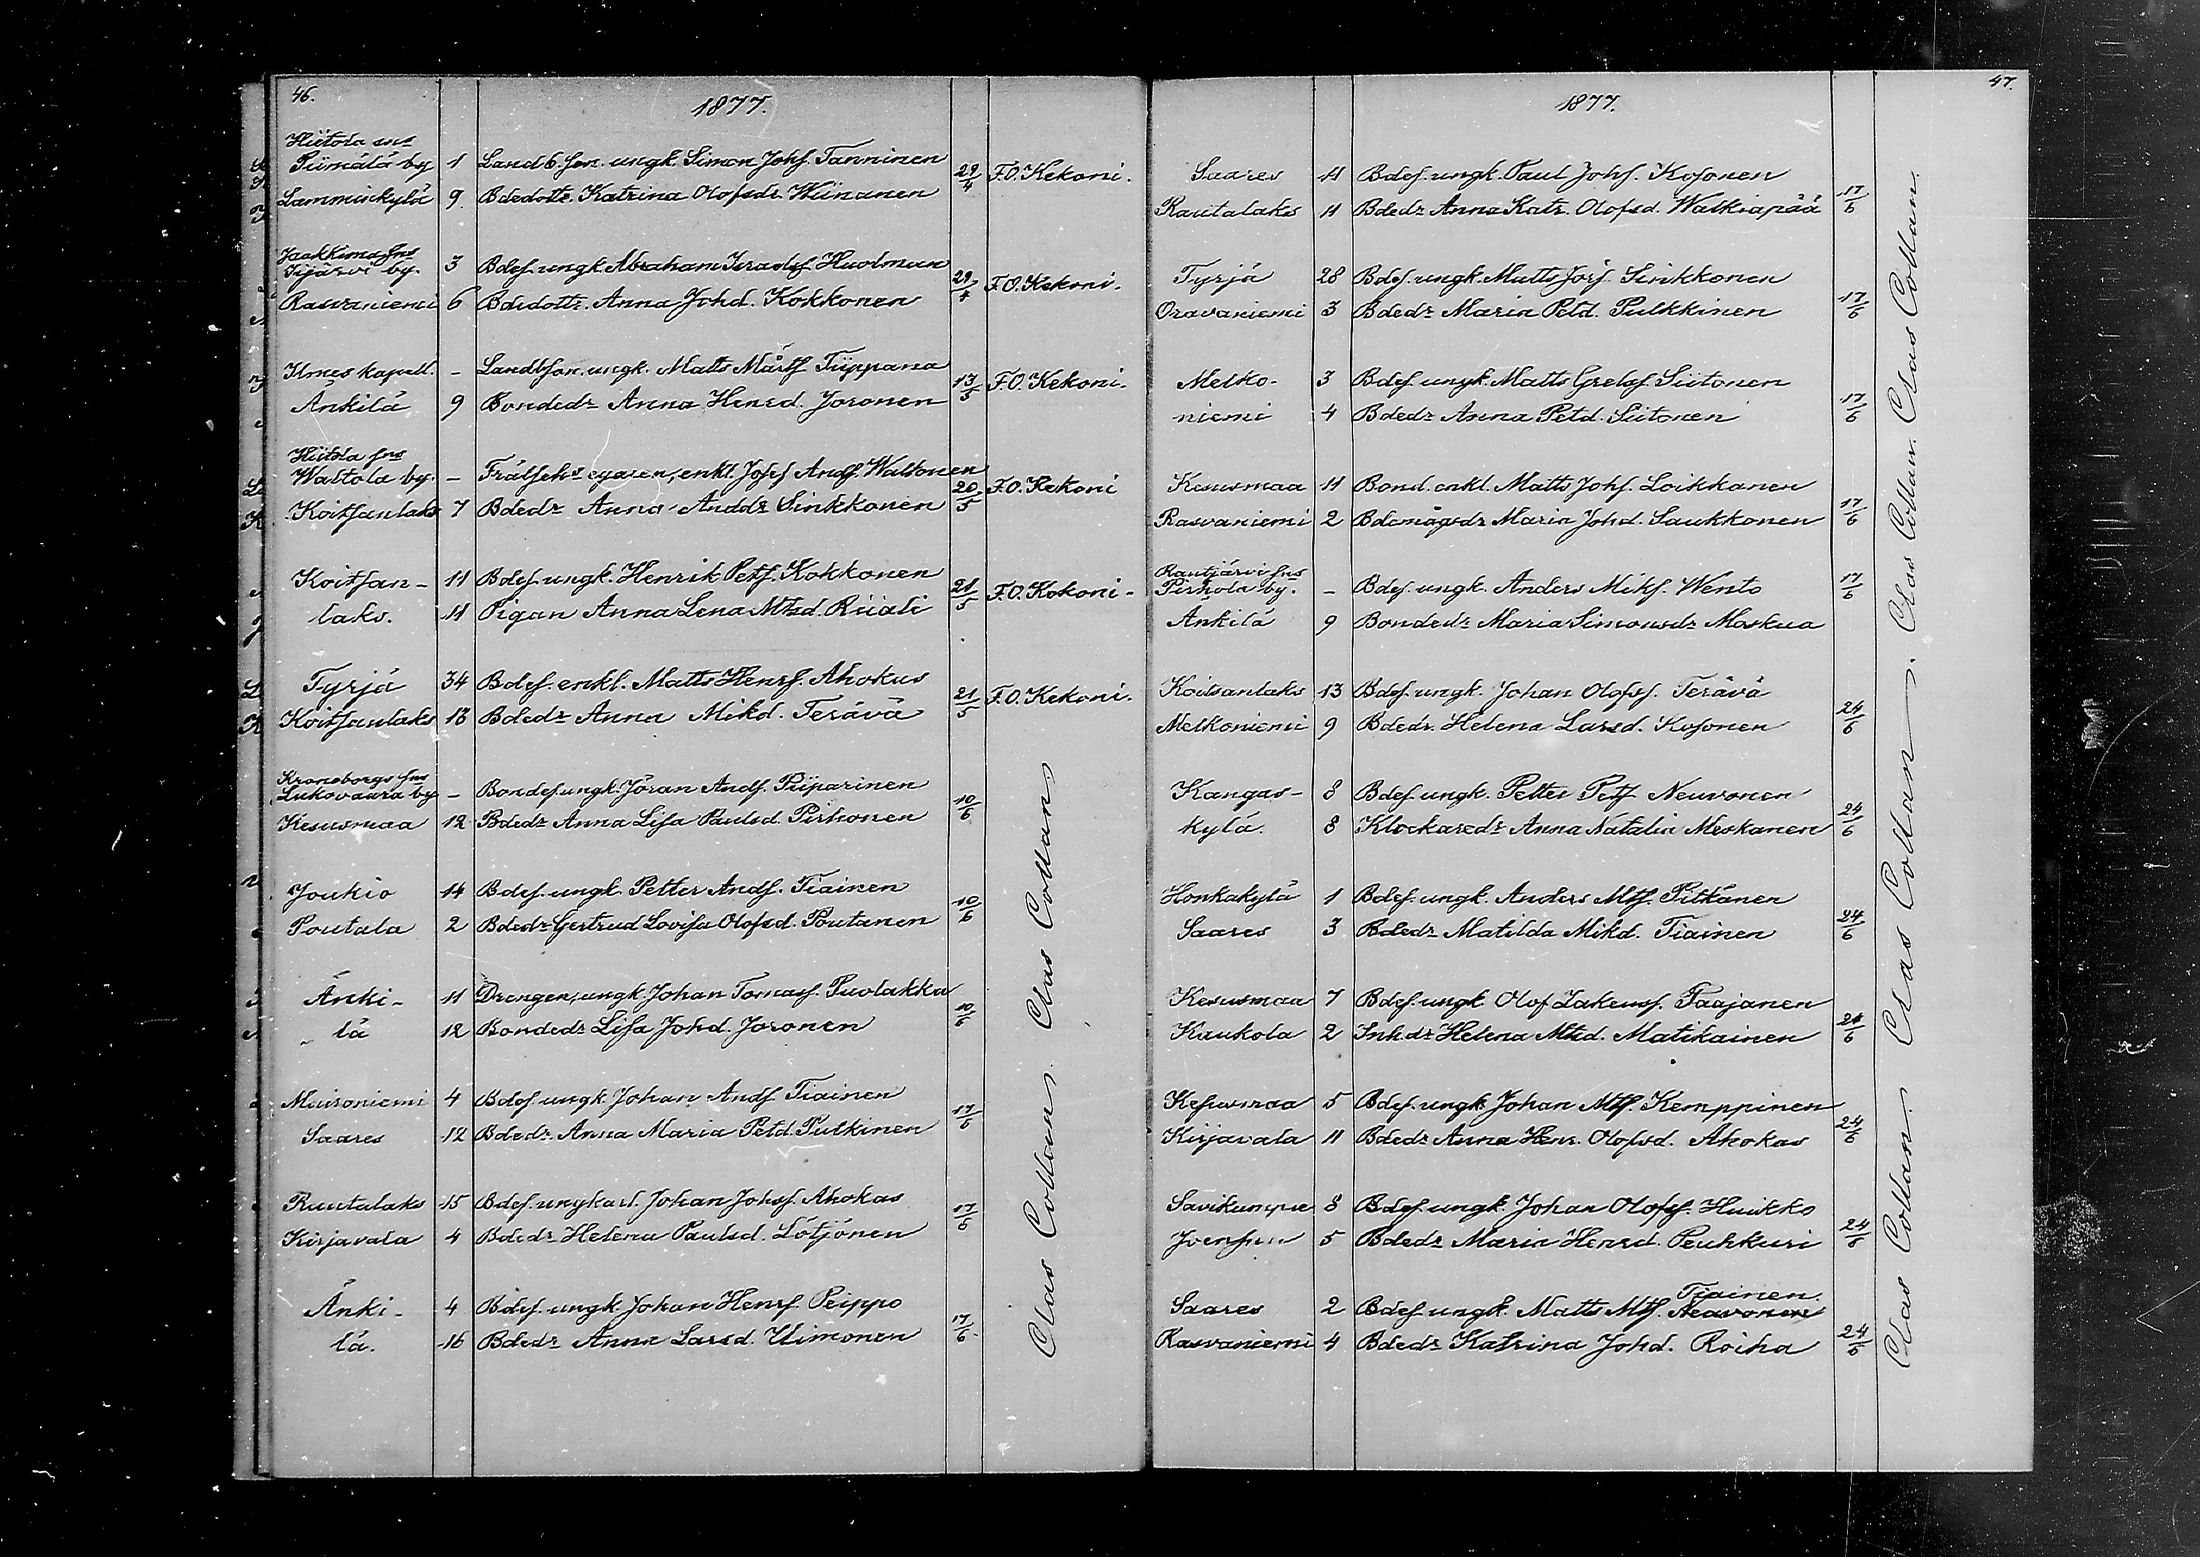 46.
1877.
Hiitola sns
Piimälä by 1 Landb. son. ungk. Simon Johs. Tanninen 29/4 F.O. Kekoni.
Lamminkylä 9 Bdedottr. Katrina Olofsdr. Wiinanen
Jaakkima sns
Iijärvi by. 3 Bdes. ungk. Abraham Israelss. Huolman 29/4 F.O. Kekoni.
Rasvaniemi 6 Bdedottr. Anna Johd. Kokkonen
Ilmes kapell. - Landbson. ungk. Matts Mårts. Tiippana 13/5 F.O. Kekoni.
Änkilä 9 Bondedr Anna Henrd. Joronen
Hiitola sns
Waltola by. - Frälsehs egaren, enkl. Josef Ands. Waltonen 20/5 F.O. Kekoni
Koitsanlaks 7 Bdedr Anna Anddr Sinkkonen
Koitsan- 11 Bdes. ungk. Henrik Pets. Kokkonen 21/5 F.O. Kekoni.
laks. 11 Pigan Anna Lena Mtsd. Riiali
Tyrjä 34 Bdes. enkl. Matts Henrs. Ahokas 21/5 F.O. Kekoni.
Koitsanlaks 13 Bdedr Anna Mikd. Terävä
Kronoborgs sns
Lukovaara by - Bondes. ungk. Jöran Ands. Piiparinen 10/6
Kesusmaa 12 Bdedr Anna Lisa Paulsd. Pirhonen
Joukio 14 Bdes. ungk. Petter Ands. Tiainen 10/6
Poutala 2 Bdedr Gertrud Lovisa Olofsd. Poutanen
Änki- 11 Drengen, ungk. Johan Tomass. Puolakka 10/6
lä 12 Bondedr Lisa Johd. Joronen
Mäironiemi 4 Bdes. ungk. Johan Ands. Tiainen 17/6
Saares 12 Bdedr. Anna Maria Petd. Pulkinen
Rautalaks 15 Bdes. ungkarl. Johan Johss. Ahokas 17/6
Kirjavala 4 Bdedr Helena Paulsd. Lötjönen
Änki- 4 Bdes. ungk. Johan Henrs. Peippo 17/6.
lä. 16 Bdedr Anna Larsd. Uimonen
Clas Collan. Clas Collan
47.
1877.
Saares 11 Bdes. ungk. Paul Johs. Kosonen 17/6
Rautalaks 11 Bdedr Anna Katr. Olofsd. Walkiapää
Tyrjä 28 Bdes. ungk. Matts Jörs. Sinkkonen 17/6
Oravaniemi 3 Bdedr Maria Petd. Pulkkinen
Melko- 3 Bdes. ungk. Matts Grelss. Siitonen 17/6
niemi 4 Bdedr Anna Petd. Siitonen
Kesusmaa 11 Bond. enkl. Matts Johs. Loikkanen 17/6
Rasvaniemi 2 Bdemågsdr Maria Johd. Saukkonen
Rautjärvi sns
Pirhola by. - Bdes. ungk. Anders Miks. Wento 17/6
Änkilä 9 Bondedr Maria Simonsdr Moskua
Koitsanlaks 13 Bdes. ungk. Johan Olofss. Terävä 24/6
Melkoniemi 9 Bdedr. Helena Larsd. Kosonen
Kangas- 8 Bdes. ungk. Petter Pets. Neuvonen 24/6
kylä. 8 Klockaredr Anna Natalia Meskanen
Honkakylä 1 Bdes. ungk. Anders Mtss. Pitkänen 24/6
Saares 3 Bdedr Matilda Mikd. Tiainen
Kesusmaa 7 Bdes. ungk Olof Zakeuss. Taajanen 24/6
Kaukola 2 Inh.dr Helena Mtsd. Matikainen
Kesusmaa 5 Bdes. ungk. Johan Mtss. Kemppinen 24/6
Kirjavala 11 Bdedr Anna Henr. Olofsd. Ahokas
Savikumpu 8 Bdes. ungk. Johan Olofss. Huikko 24/6
Joensuu 5 Bdedr Maria Henrd. Peuhkuri
Tiainen.
Saares 2 Bdes. ungk. Matts Mtss. Neuvonen
Rasvaniemi 4 Bdedr Katrina Johd. Roiha 24/6
Clas Collan. Clas Collan. Clas Collan. Clas Collan.